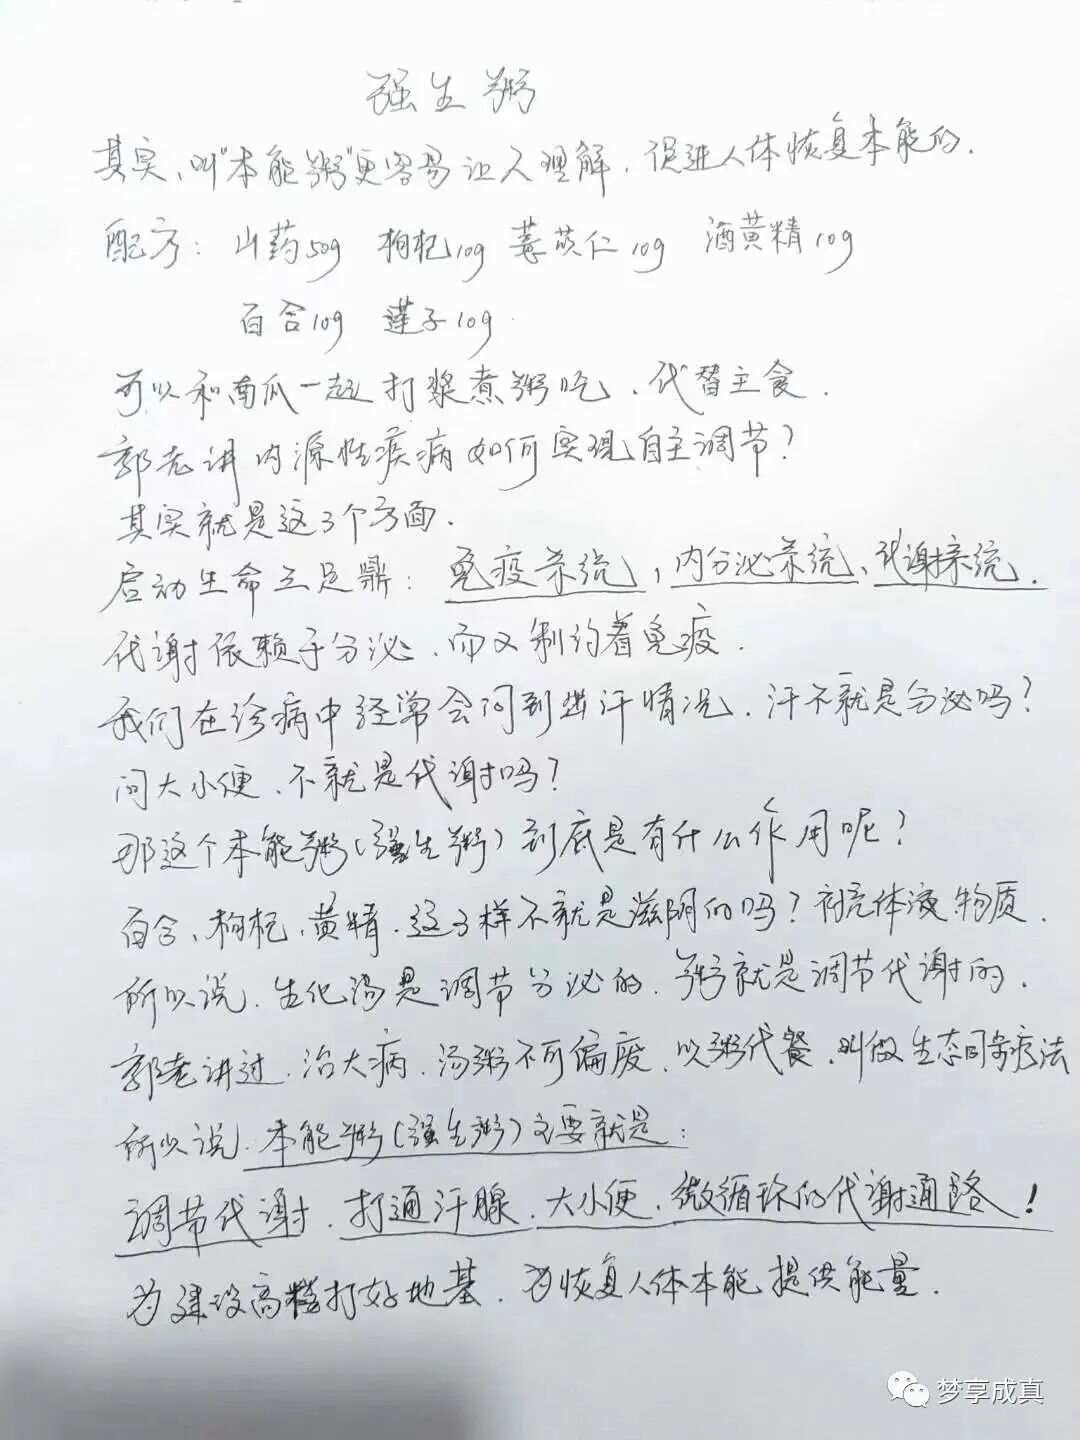 强生粥
其实、叫"本能粥"更容易让人理解．促进人体恢复本能的．
配方：山药50g 枸杞10g 薏苡仁10g 酒黄精10g
百合10g 莲子10g．
可以和南瓜一起打浆煮粥吃、代替主食．
郭老讲内源性疾病如何实现自主调节？
其实就是这3个方面．
启动生命三足鼎：免疫系统，内分泌系统、代谢系统．
代谢依赖于分泌、而又制约着免疫．
我们在诊病中经常会问到出汗情况．汗不就是分泌吗？
问大小便、不就是代谢吗？
那这个本能粥(强生粥)到底是有什么作用呢？
百合、枸杞、黄精．这3样不就是滋阴的吗？补充体液物质．
所以说．生化汤是调节分泌的．粥就是调节代谢的．
郭老讲过．治大病．汤粥不可偏废．以粥代餐．叫做生态同牵疗法
所以说．本能粥(强生粥)主要就是：
调节代谢．打通汗腺．大小便．微循环的代谢通路！
为建设高楼打好地基．为恢复人体本能提供能量．
梦享成真